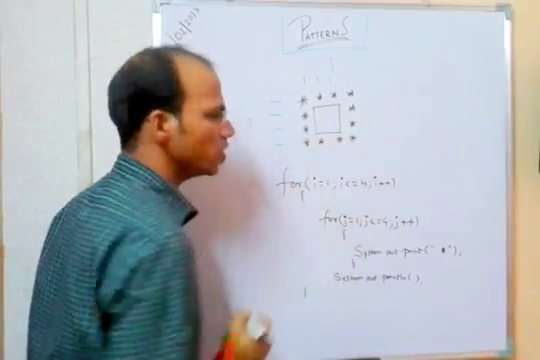 /02/2023
PATTERNS
* * * *
* *
* *
* * * *
for(i=1, i<=4, i++)
{
for(j=1, j<=4, j++)
{
System.out.print(" *");
}
System.out.println();
}